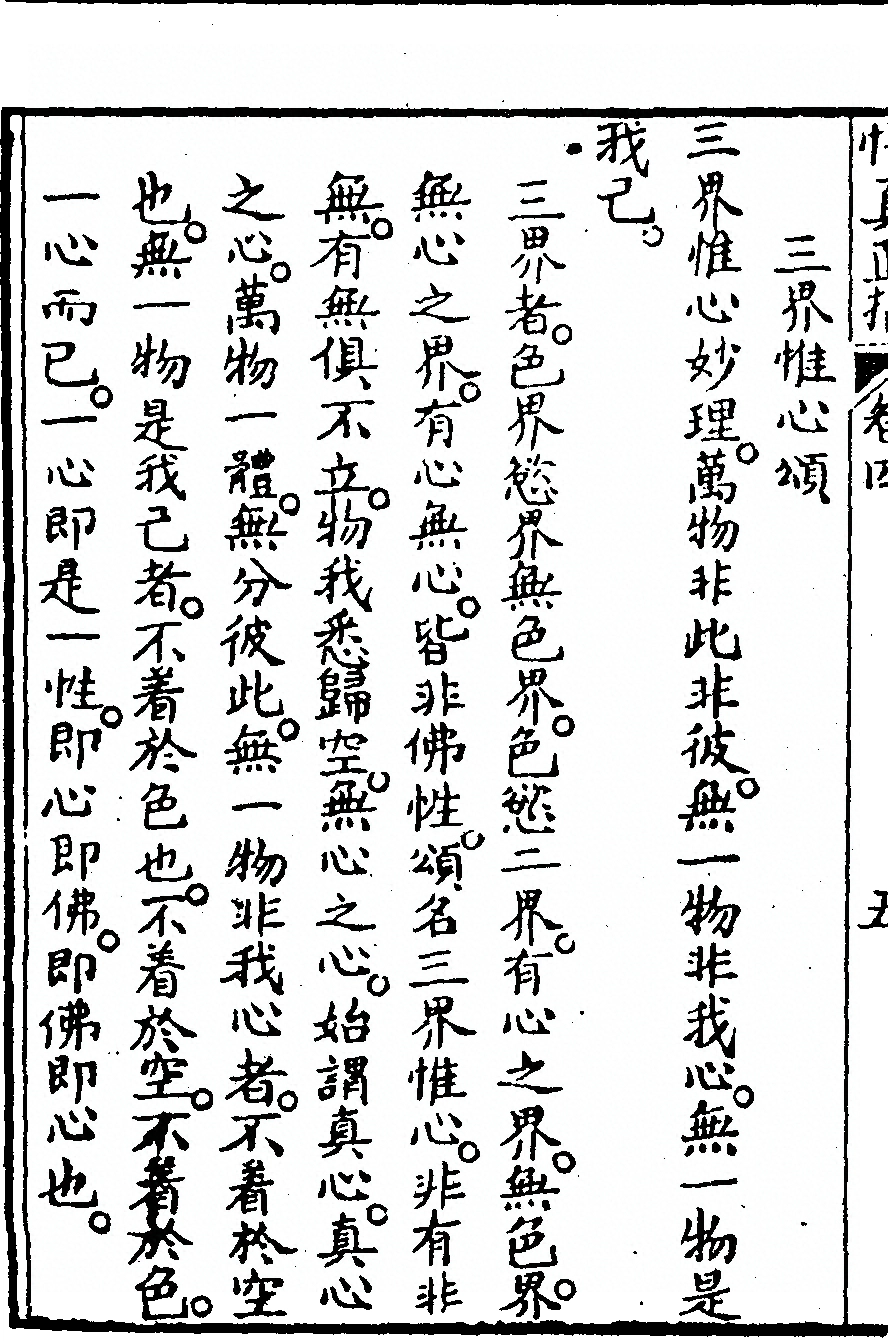 悟真正指 卷四 五
三界惟心頌
三界惟心妙理。萬物非此非彼。無一物非我心。無一物是
我己。
三界者。色界慾界無色界。色慾二界。有心之界。無色界。
無心之界。有心無心。皆非佛性。頌名三界惟心。非有非
無。有無俱不立。物我悉歸空。無心之心。始謂真心。真心
之心。萬物一體。無分彼此。無一物非我心者。不着於空
也。無一物是我己者。不着於色也。不着於空。不着於色。
一心而已。一心即是一性。即心即佛。即佛即心也。